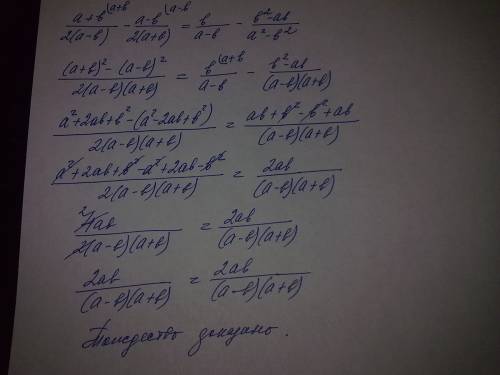 (a+b)/(2(a-b)) ⁽ᵃ⁺ᵇ - (a-b)/(2(a+b)) ⁽ᵃ⁻ᵇ = b/(a-b) - (b²-ab)/(a²-b²)
((a+b)²-(a-b)²)/(2(a-b)(a+b)) = b/(a-b) ⁽ᵃ⁺ᵇ - (b²-ab)/((a-b)(a+b))
(a²+2ab+b²-(a²-2ab+b²))/(2(a-b)(a+b)) = (ab+b²-b²+ab)/((a-b)(a+b))
(a²+2ab+b²-a²+2ab-b²)/(2(a-b)(a+b)) = 2ab/((a-b)(a+b))
4ab/(2(a-b)(a+b)) = 2ab/((a-b)(a+b))
2ab/((a-b)(a+b)) = 2ab/((a-b)(a+b))
Тождество доказано.